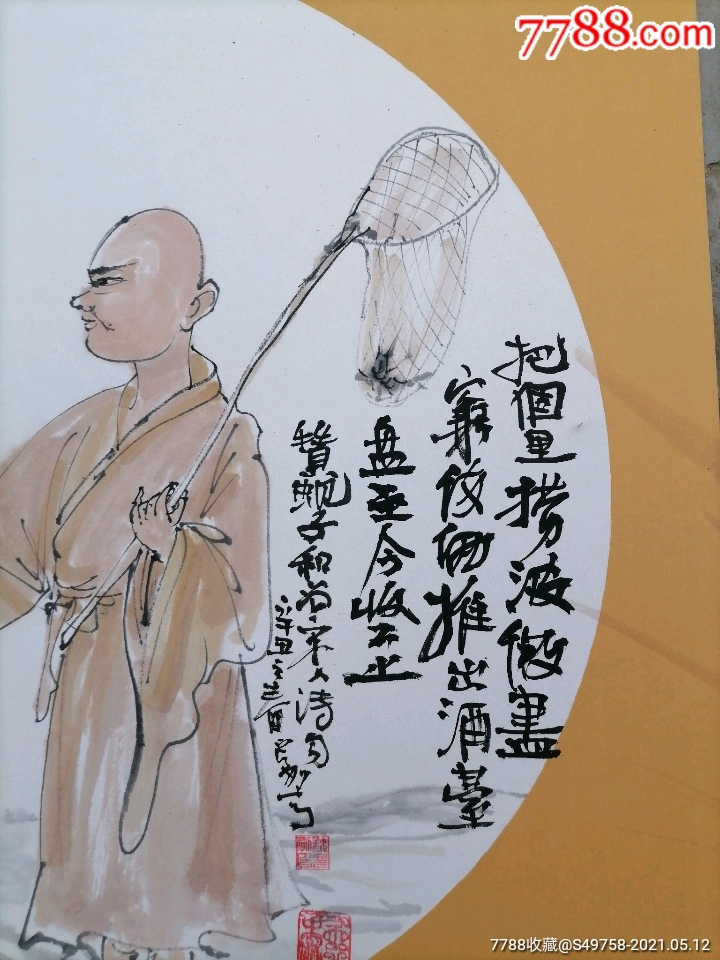 7788.com
把個里撈波做盡
窮伎倆推出酒臺
盘至今收不上
贊蜆子和尚宋人诗句
辛丑之春
7788收藏@S49758-2021.05.12